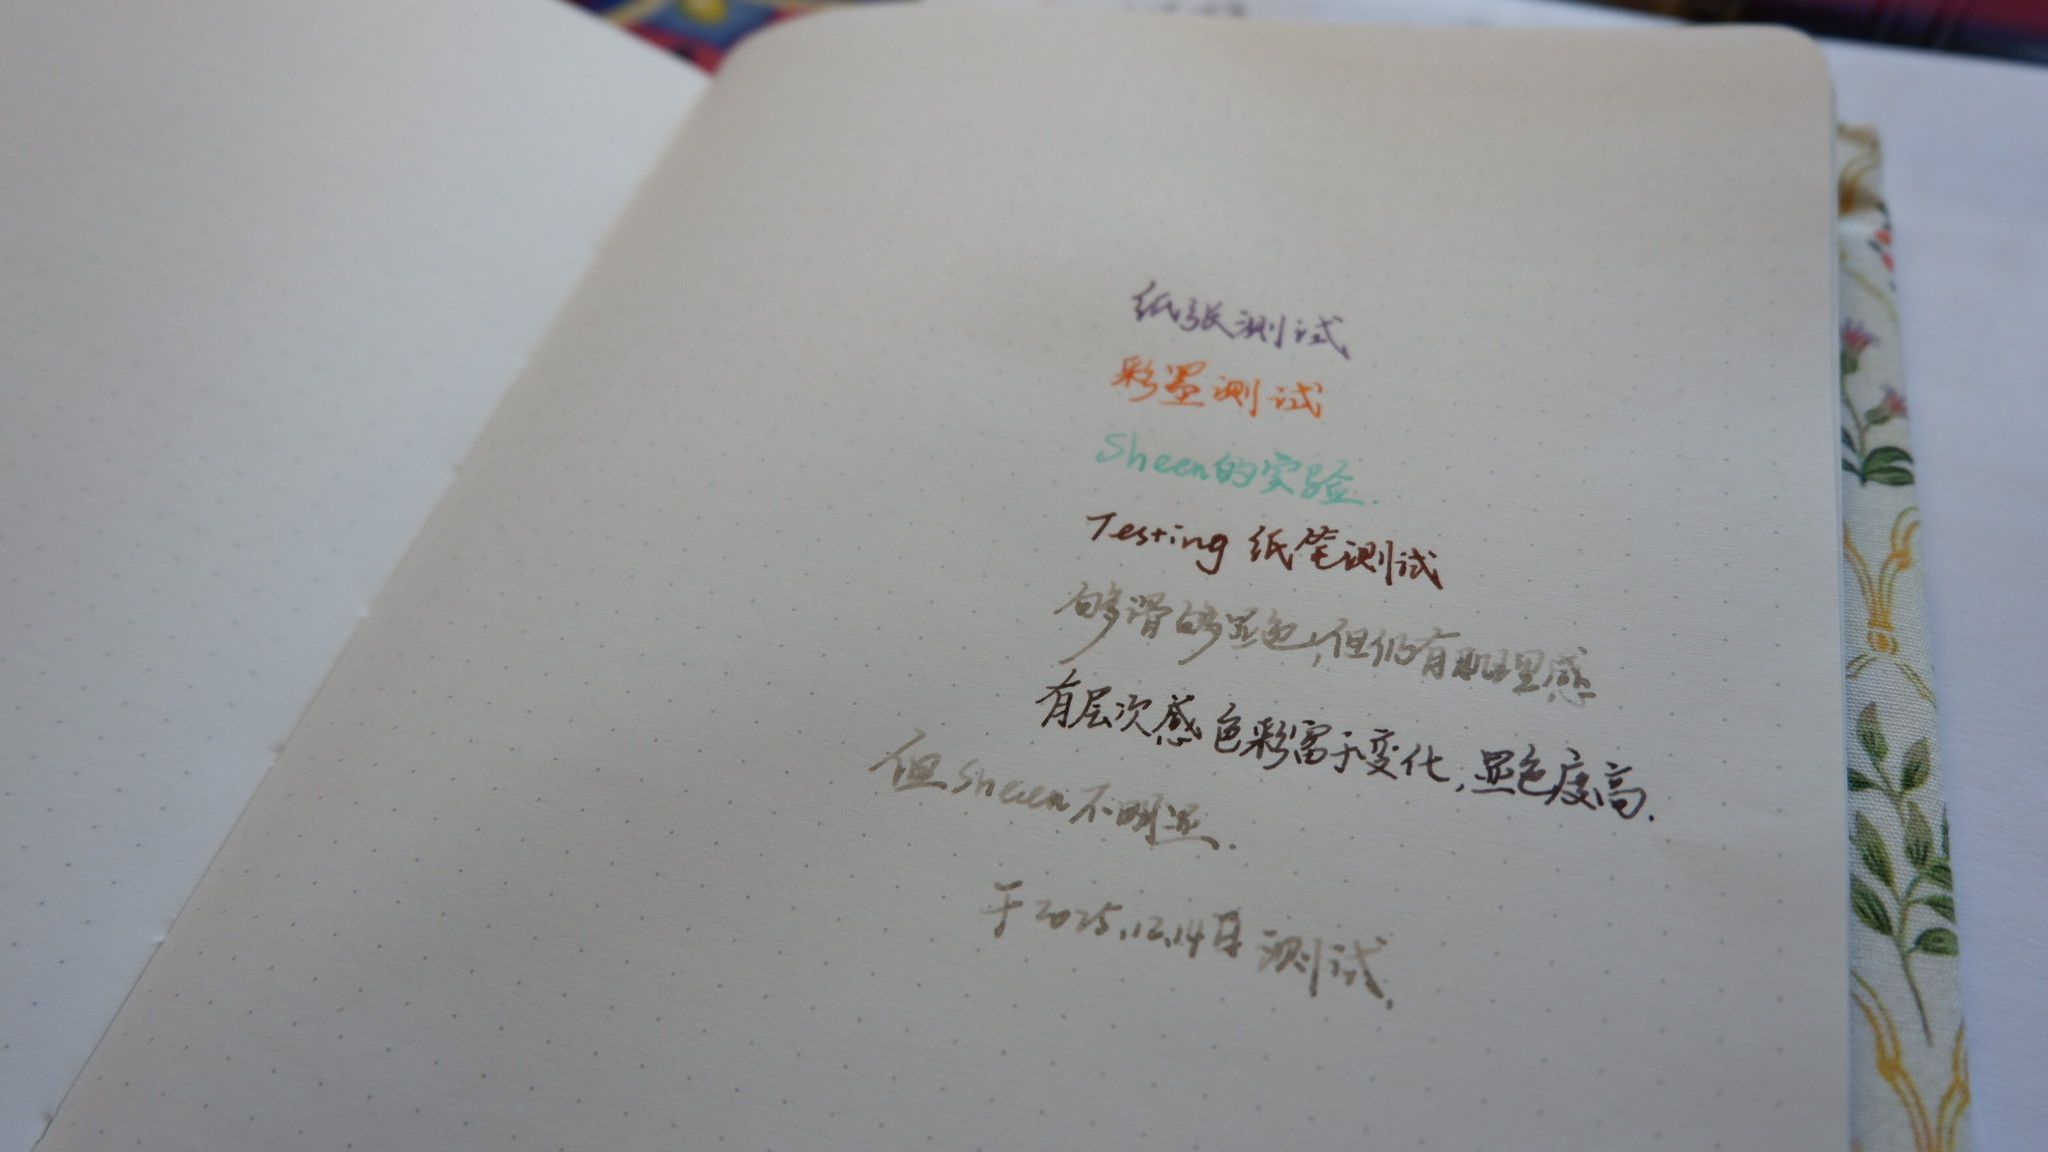 纸张测试
彩墨测试
Sheen的实验.
Testing 纸笔测试
够滑够显色,但仍有肌理感
有层次感 色彩富于变化,显色度高.
但sheen不明显.
于2025.12.14日 测试.